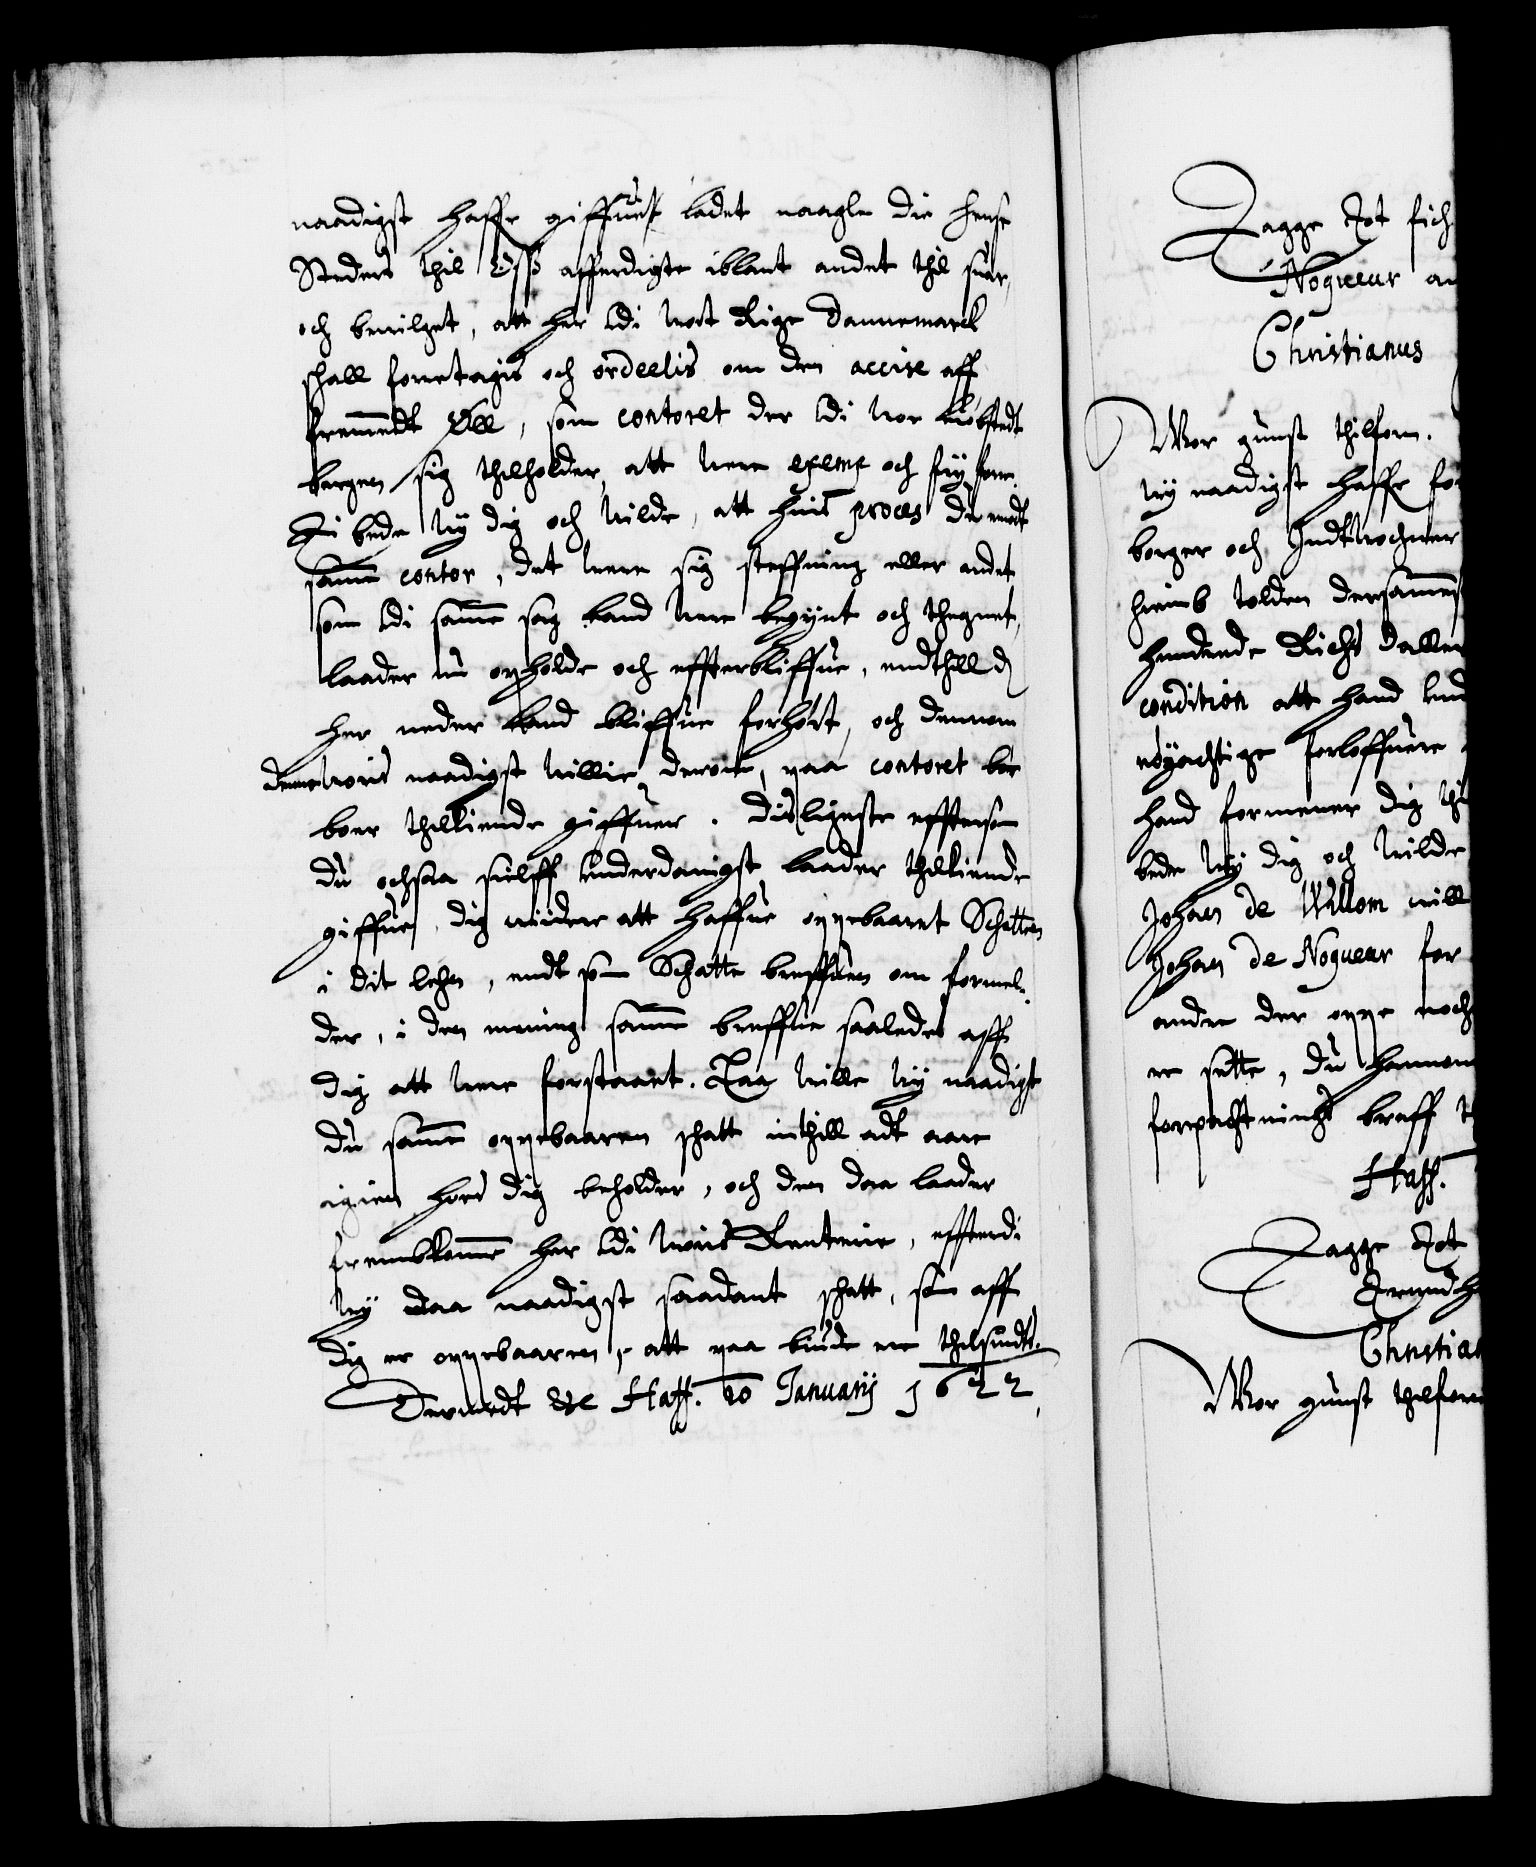 naadigst haffr giffuet ladet naagle die hense
Steders thil Oss afferdigte iblant andet thil suar,
och beuilget, att her Udi wort Rige Dannemarck
schall foretagis och ordeelis om den accise aff
fremmedt Øll, som contoret der Udi wor kiøbstedt
bergen sig thilholder, att were exemt och frij fore.
Thi bede wij dig och wilde, att huis proces du modt
samme contor, det were sig steffning eller andet
som Udi samme sag kand were begynt och thegnet,
laader nu opholde och effterbliffue, indthill d
her neder kand bliffue forhørt, och dennom
woris naadigst willie derom, paa contoret
boer thilkiende giffuer. Disligeste effterson
du ochsaa sielff Underdanigst laader thilkiende
giffue, dig mindre att haffue oppebaaret Schatten
i dit lehn, endt som Schatte breffuen om formel-
der, i den mening samme breffue saaledes aff
dig att were forstaaet. Daa wille wij naadigst
du samme oppebaaren schatt inthill adt aare
igien hoes dig beholder, och den daa laader
frembkomme her Udi woris Renterie, effterdi
wij daa naadigst saadant schatt, som aff
dig er oppebaaren, att paa biude ere thilsindts.
Dermedt &c Haff. 20 Januarij 1622,
Jagge Jot fich
Nogueur
Christianus
Wor gunst thilforn.
wij naadigst haffr
borger och Indtwohner
hiemb tolden dersammes
hundrede Richs daller
condition att hand
nøyachtige forloffuere
hand formener dig
bede wij dig och wilde
Johan de Willom will
Johan de Nogueur for
andre der oppe noch
re sette, du hannom
forpachtnings breff
Haff.
Jagge Jot
Christian
Wor gunst thilforn